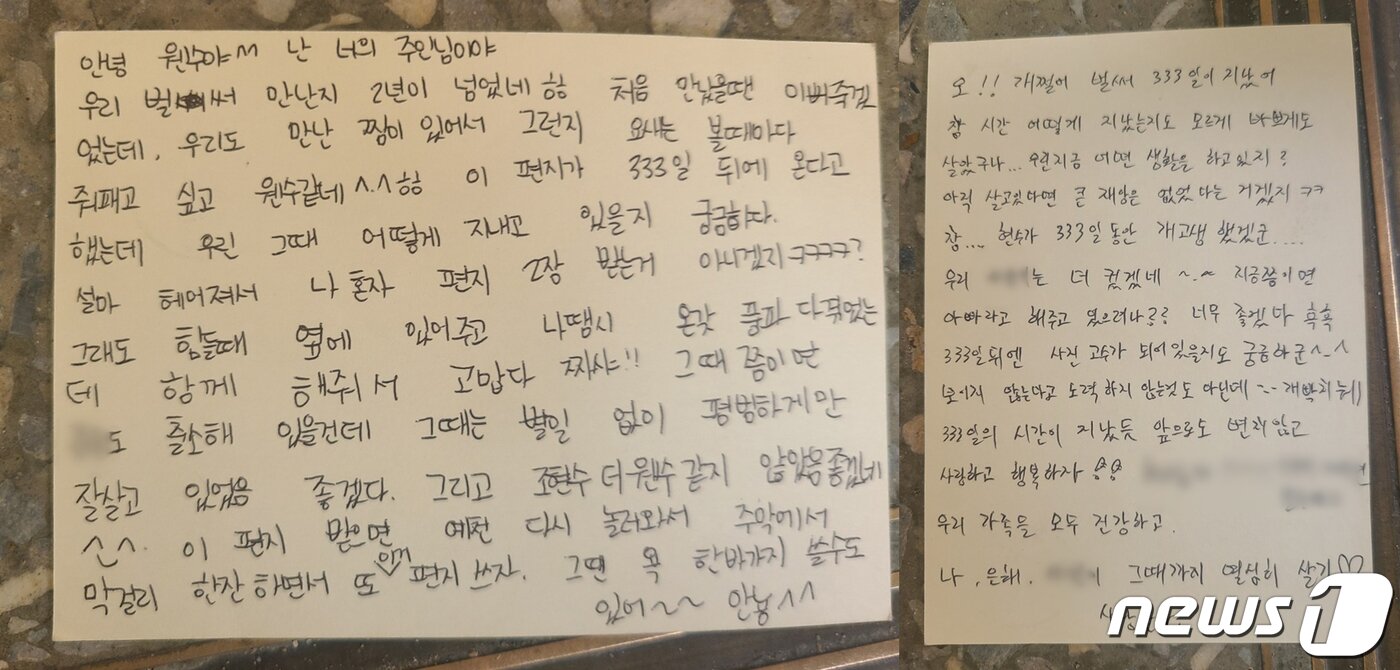 안녕 원수야^^ 난 너의 주인님이야
우리 벌써 만난지 2년이 넘었네 ㅎㅎ 처음 만났을땐 이뻐죽겠
었는데, 우리도 만난 찜이 있어서 그런지 요새는 볼때마다
줘패고 싶고 원수같네^.^ㅎㅎ 이 편지가 333일 뒤에 온다고
했는데 우린 그때 어떻게 지내고 있을지 궁금하다.
설마 헤어져서 나 혼자 편지 2장 받는거 아니겠지ㅋㅋㅋㅋ?
그래도 힘들때 옆에 있어주고 나땜시 온갖 풍파 다겪었는
데 함께 해줘서 고맙다 짜샤!! 그때 쯤이면
도 출소해 있을건데 그때는 별일 없이 평범하게만
잘살고 있었음 좋겠다. 그리고 조현수 더 원수 같지 않았음좋겠네
^^. 이 편지 받으면 예전 다시 놀러와서 주막에서
막걸리 한잔 하면서 또 와가 편지 쓰자. 그땐 욕 한바가지 쓸수도
있어~~ 안뇽^^
오!! 개쩔어 벌써 333일이 지났어
참 시간 어떻게 지났는지도 모르게 바쁘게도
살았구나... 오렌지금 어떤 생활은 하고있지?
아직 살고있다면 큰 재앙은 없었다는 거겠지 ㅋㅋ
참... 현수가 333일동안 개고생 했겠군....
우리 는 더 컸겠네 ~.~ 지금쯤이면
아빠라고 해주고 있으려나?? 너무 좋겠다 흑흑
333일뒤엔 사진 고수가 되어있을지도 궁금하군^-^
보이지 않는다고 노력하지 않는것도 아닌데 ~~
333일의 시간이 지났듯 앞으로도 변치않고
사랑하고 행복하자
우리 가족들 모두 건강하고.
나, 은해, 그때까지 열심히 살기♡
news1